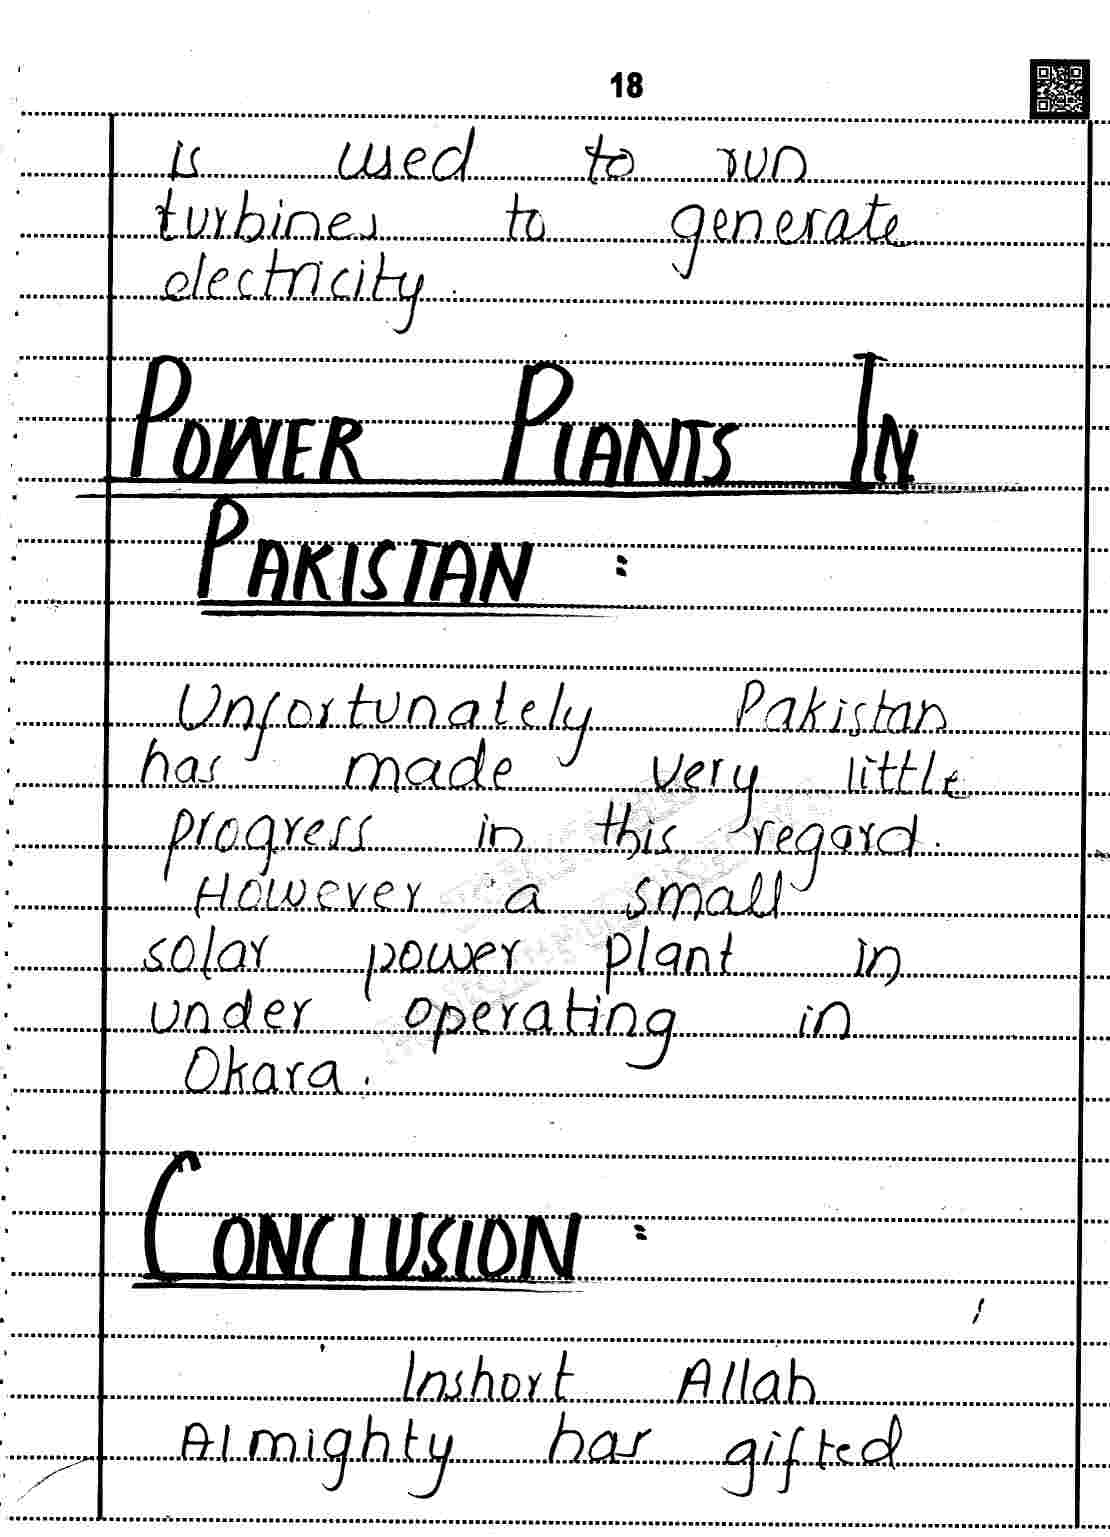 18
is used to run
turbines to generate
electricity.
POWER PLANTS IN
PAKISTAN :
Unfortunately Pakistan
has made very little
progress in this regard.
However a small
solar power plant in
under operating in
Okara.
CONCLUSION :
Inshort Allah
Almighty has gifted